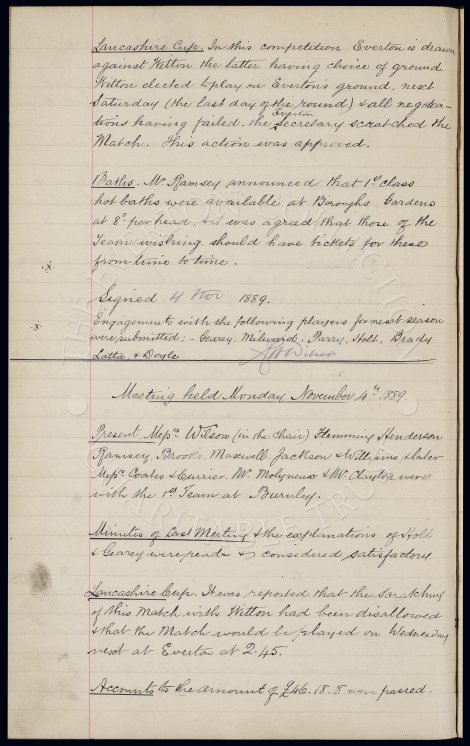 Lancashire Cup. In this competition Everton is drawn
against Witton the latter having choice of ground.
Witton elected to play on Everton's ground, next
Saturday (the last day of the round) & all negotia-
tions having failed, the Everton Secretary scratched the
Match. This action was approved.
Baths. Mr Ramsey announced that 1st class
hot baths were available at Boroughs Gardens
at 8d per head, & it was agreed that those of the
Team wishing should have tickets for these
from time to time.
Signed 4 Nov 1889.
Engagements with the following players for next season
were submitted:- Geary, Milward, Parry, Holt, Brady
Latta, & Doyle
Wilson
Meeting held Monday November 4th 1889.
Present. Messrs Wilson (in the chair) Flemming Henderson
Ramsey, Brooks, Maxwell, Jackson & Williams & later
Messrs Coates & Currier. Mr Molyneux & Mr Clayton were
with the 1st Team at Burnley.
Minutes of Last Meeting & the explanations of Holt
& Geary were read & considered satisfactory
Lancashire Cup. It was reported that the scratching
of this Match with Witton had been disallowed
& that the Match would be played on Wednesday
next at Everton at 2.45.
Accounts to the amount of £46.18.8 were passed.